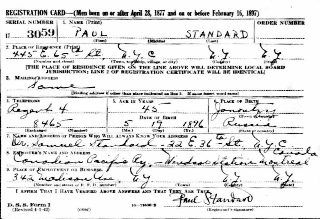 REGISTRATION CARD—(Men born on or after April 28, 1877 and on or before February 16, 1897)
SERIAL NUMBER 1. NAME (Print) ORDER NUMBER
U 3059 PAUL STANDARD
(First) (Middle) (Last)
2. PLACE OF RESIDENCE (Print)
445 E. 65th St N.Y.C N.Y N.Y
(Number and street) (Town, township, village, or city) (County) (State)
[THE PLACE OF RESIDENCE GIVEN ON THE LINE ABOVE WILL DETERMINE LOCAL BOARD
JURISDICTION; LINE 2 OF REGISTRATION CERTIFICATE WILL BE IDENTICAL]
3. MAILING ADDRESS
Same
[Mailing address if other than place indicated on line 2. If same insert word same]
4. TELEPHONE 5. AGE IN YEARS 6. PLACE OF BIRTH
Regent 4 45
DATE OF BIRTH
8465 5 19 1896 Russia
(Mo.) (Day) (Yr.)
7. NAME AND ADDRESS OF PERSON WHO WILL ALWAYS KNOW YOUR ADDRESS
Dr. Samuel Standard 22 E. 36th St. N.Y.C
8. EMPLOYER'S NAME AND ADDRESS Canada
Canadian Pacific Ry. Windsor Station Montreal
9. PLACE OF EMPLOYMENT OR BUSINESS
342 Madison Ave N.Y. N.Y.
(Number and street or R. F. D. number) (Town) (County) (State)
I AFFIRM THAT I HAVE VERIFIED ABOVE ANSWERS AND THAT THEY ARE TRUE.
D. S. S. Form 1 Paul Standard